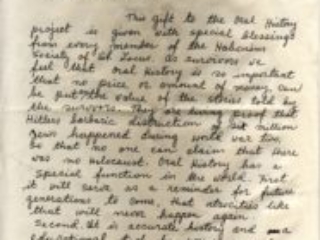 This gift to the Oral History
project is given with special blessings
from every member of the Holocaust
Society of St Louis. As survivors we
feel that Oral History is so important
that no price or amount of money can
be put on the value of the stories told by
the survivors. They are living proof that
Hitlers barbaric distruction of six million
jews happened during world war two,
so that no one can claim that there
was no Holocaust. Oral History has a
special function in the world. First
it will serve as a reminder for future
generations to come, that atrocities like
that will never happen again
Second it is accurate history and a
educational